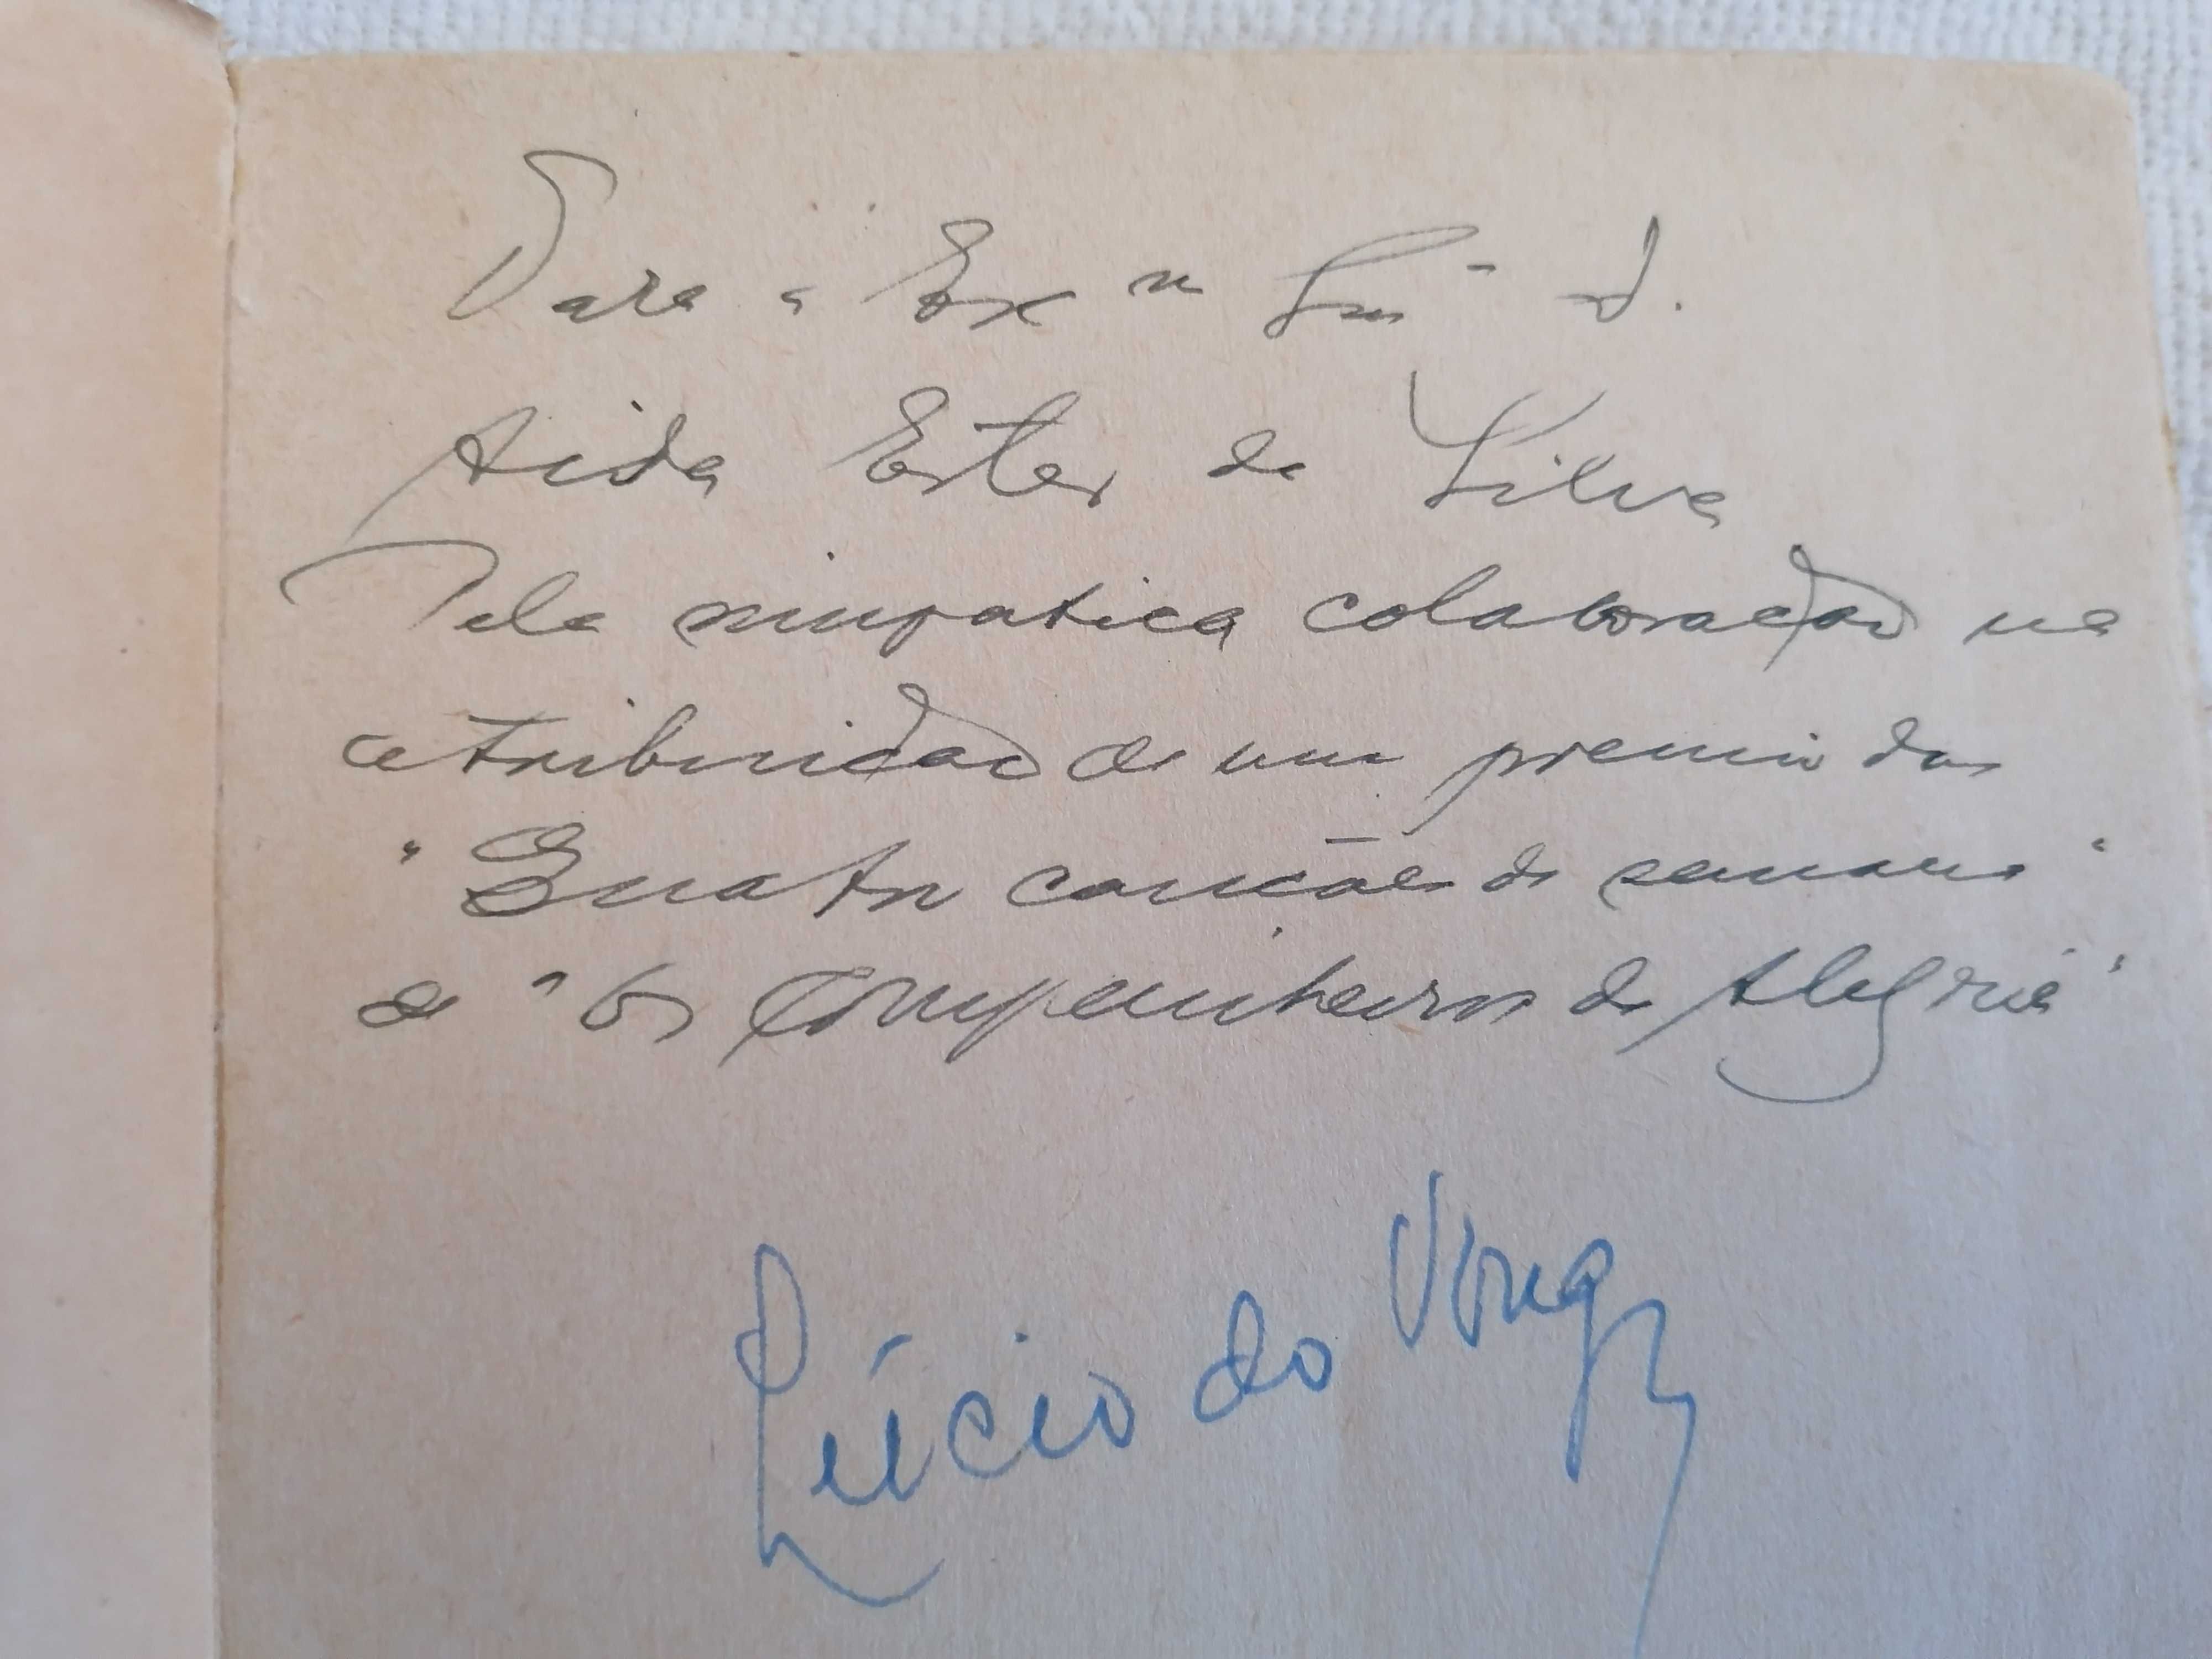 Para a Ex ma Sra D.
Aida Ester da Silva
Pela simpatica colaboração na
atribuição de um premio das
"Quatro canções da semana"
de "Os Companheiros da Alegria"
Lúcio do